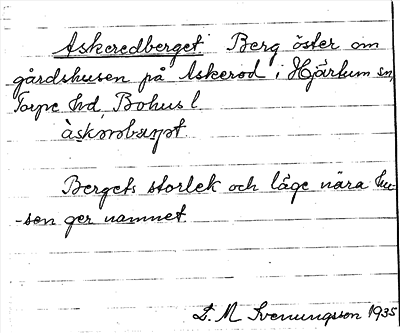 Askeredberget. Berg öster om
gårdshusen på Askerod i Hjärtum sn,
Torpe hd, Bohusl
Bergets storlek och läge nära hu-
-sen ger namnet.
L. M. Svenungsson 1935